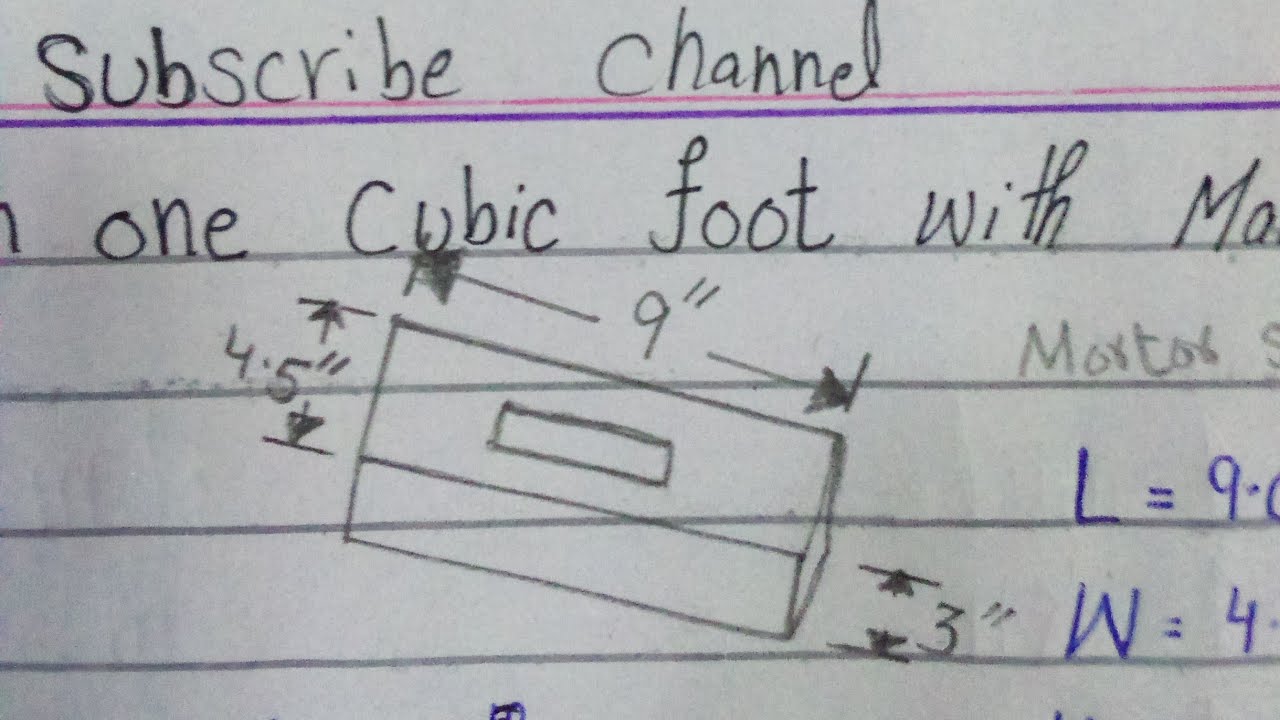 Subscribe Channel
one Cubic foot with
9"
4.5"
Mortar
L = 9.
W = 4.
3"